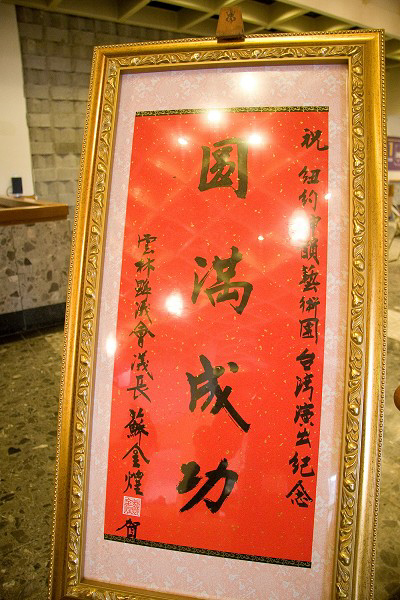 祝 紐約神韻藝術团台湾演出紀念
圓滿成功
雲林縣議會議長 蘇金煌 賀